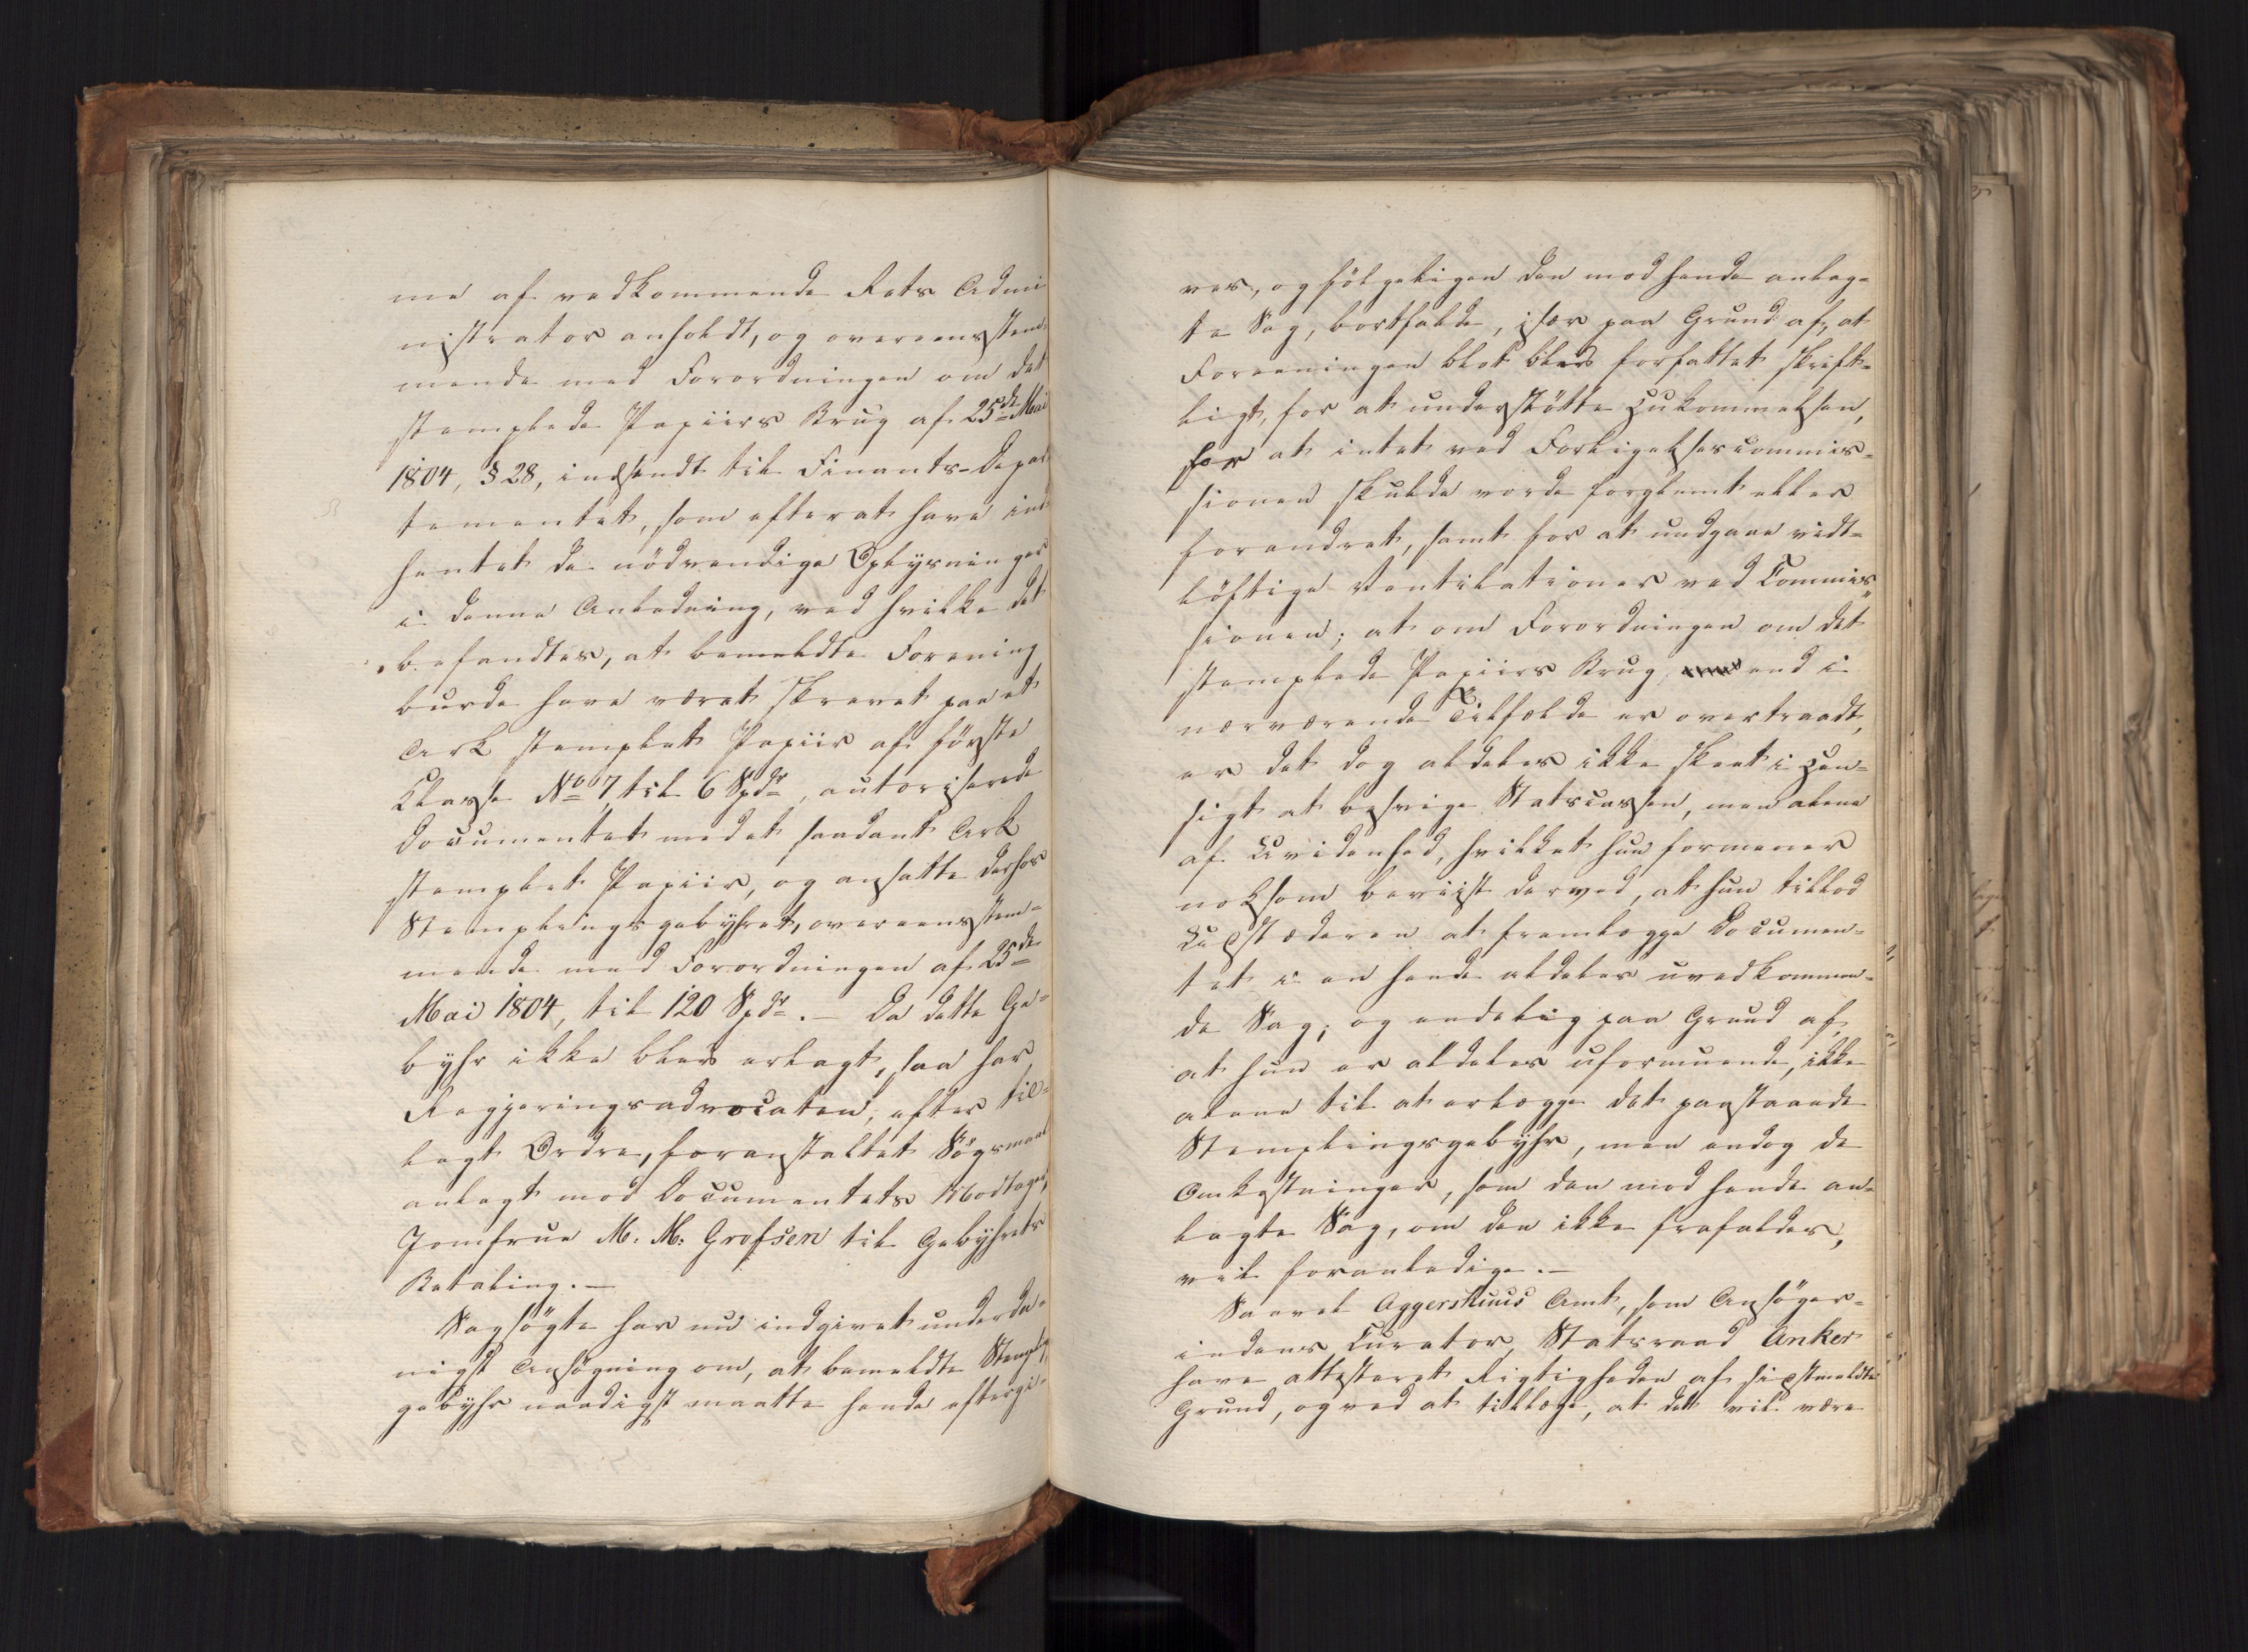 me af vedkommende Rets Admi
nistrator anholdt, og overeensstem
mende med Forordningen om det
stemplede Papiirs Brug af 25de Mai
1804, § 28, indsendt til Finants-Depar
tementet, som efterat have ind
hentet de nödvendige Oplysninger
i denne Anledning, ved hvilke det
befandtes, at bemeldte Forening
burde have været skrevet paa et
Ark stemplet Papiir af förste
Klasse No 7, til 6 Spdr, autoriserede
Documentet med et saadant Ark
stemplet Papiir, og ansatte derhos
Stemplingsgebyhret, overeensstem-
mende med Forordningen af 25de
Mai 1804, til 120 Spdr. – Da dette Ge-
byhr ikke blev erlagt, saa har
Regjeringsadvocaten, efter til-
lagt Ordre, foranstaltet Sögsmaal
anlagt mod Documentets Modtager,
Jomfrue M. M. Grofsen til Gebyhrets
Betaling. –
Sagsögte har nu indgivet underda-
nigst Ansögning om, at bemeldte Stempl.
gebyhr naadigst maatte hende eftergi-
ves, og fölgeligen den mod hende anlag-
te Sag, bortfalde, især paa Grund af, at
Foreeningen blot blev forfattet skrift-
ligt, for at understötte Hukommelsen,
for at intet ved Forligelsescommis-
sionen skulde vorde forglemt eller
forandret, samt for at undgaae vidt-
löftige Ventilationer ved Commis
sionen; at om Forordningen om det
stemplede Papiirs Brug, end i
nærværende Tilfælde er overtraadt,
er det dog aldeles ikke skeet i Hen-
sigt at besvige Statscassen, men alene
af Uvidenhed, hvilket hun formener
noksom beviist derved, at hun tillod
at fremlægge Documen-
tet i en hende aldeles uvedkommen-
de Sag; og endelig paa Grund af,
at hun er aldeles uformuende, ikke
alene til at erlægge det paastaaede
Stemplingsgebyhr, men endog de
Omkostninger, som den mod hende an-
lagte Sag, om den ikke frafaldes,
vil foranledige. –
Saavel Aggershuus Amt, som Ansöger-
indens Curator, Statsraad Anker
have attesteret Rigtigheden af sidstmeldte
Grund, og ved at tillægge, at det vil være